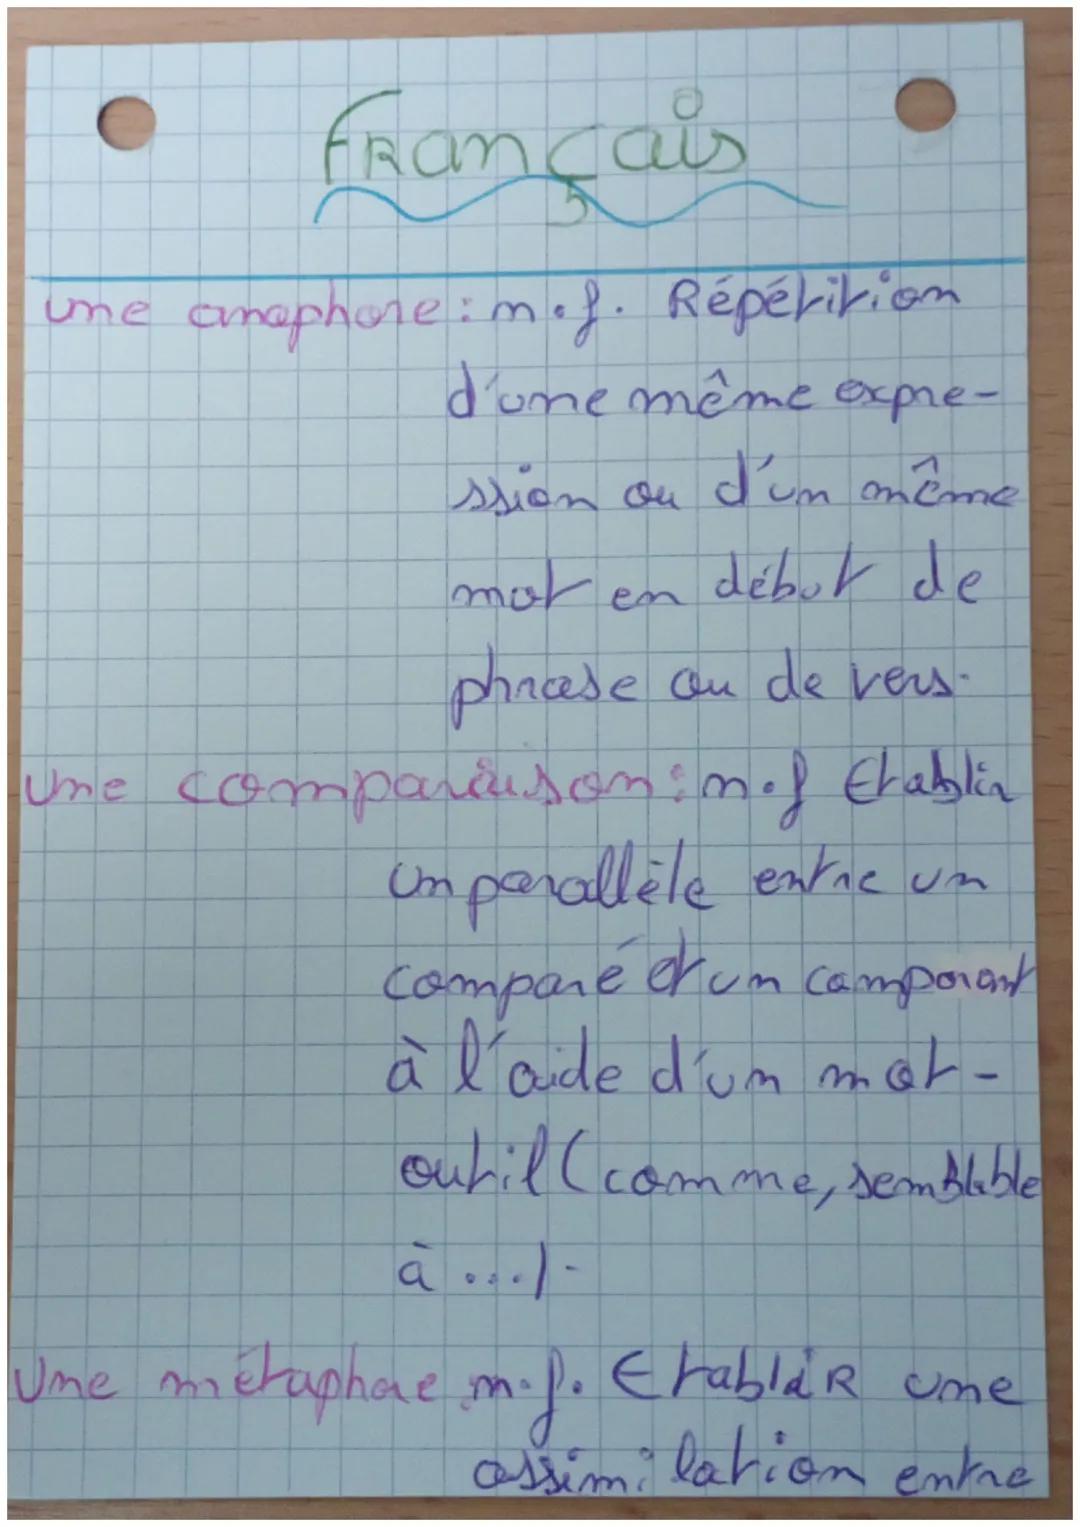 Français
une anaphore : n.f. Répétition
d'une même expre-
ssion ou d'un même
mot en début de
phrase ou de vers.
Une comparaison : n.f Etablir
un parallèle entre un
comparé et un comparant
à l'aide d'un mot-
outil (comme, semblable
à ...).
Une métaphore n.f. Etablir une
assimilation entre